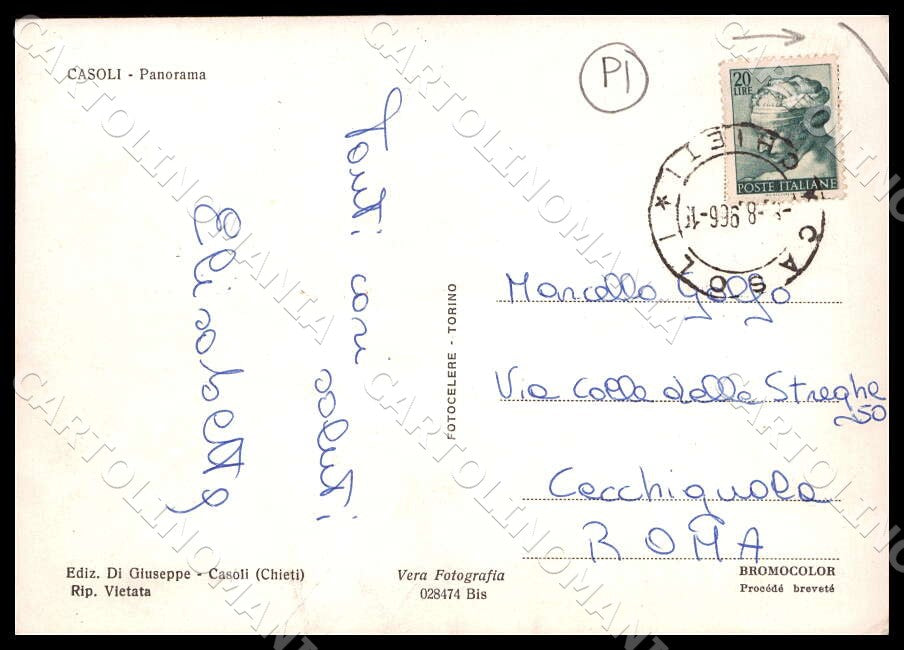 CASOLI - Panorama
P1
20
LIRE
POSTE ITALIANE
CHIETI
CASOLI
Tanti cari saluti
Elisabetta
Marcello Golfo
Via Colle delle Streghe
50
Cecchignola
ROMA
FOTOCELERE - TORINO
Ediz. Di Giuseppe - Casoli (Chieti)
Rip. Vietata
Vera Fotografia
028474 Bis
BROMOCOLOR
Procédé breveté
CARTOLINOMANIA